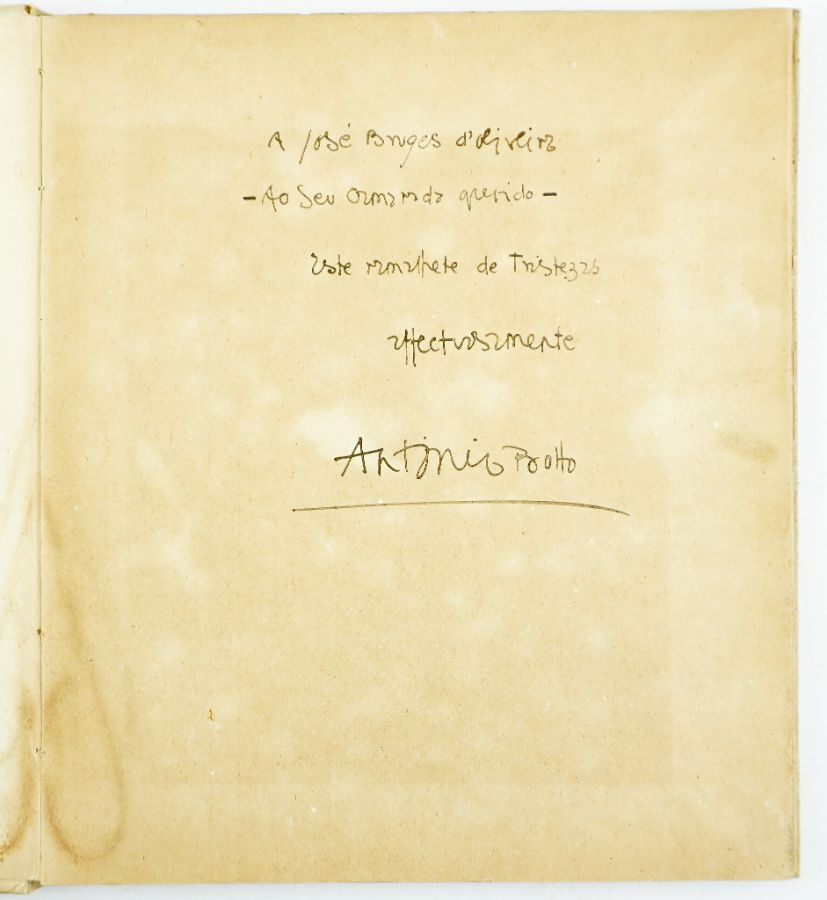 A José Bruges d'Oliveira
– Ao Seu Camarada querido –
Este ramalhete de Tristezas
affectuosamente
António Botto